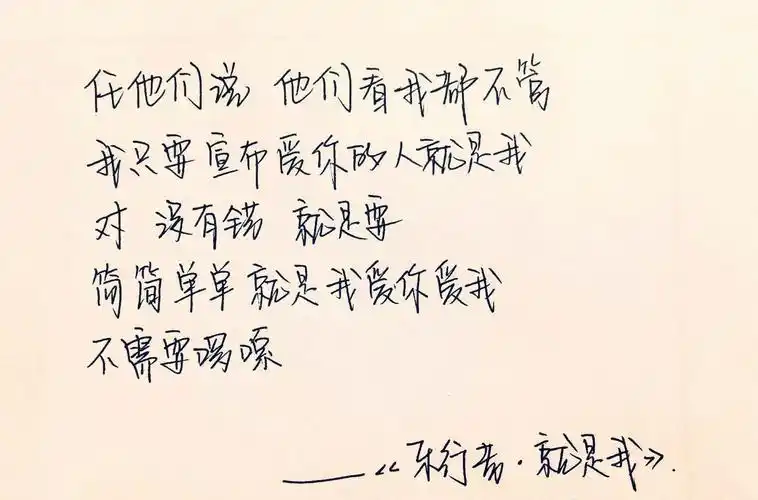 任他们说 他们看我都不管
我只要宣布爱你的人就是我
对 没有错 就是要
简简单单就是我爱你爱我
不需要啰嗦
——《朱行音·就是我》.